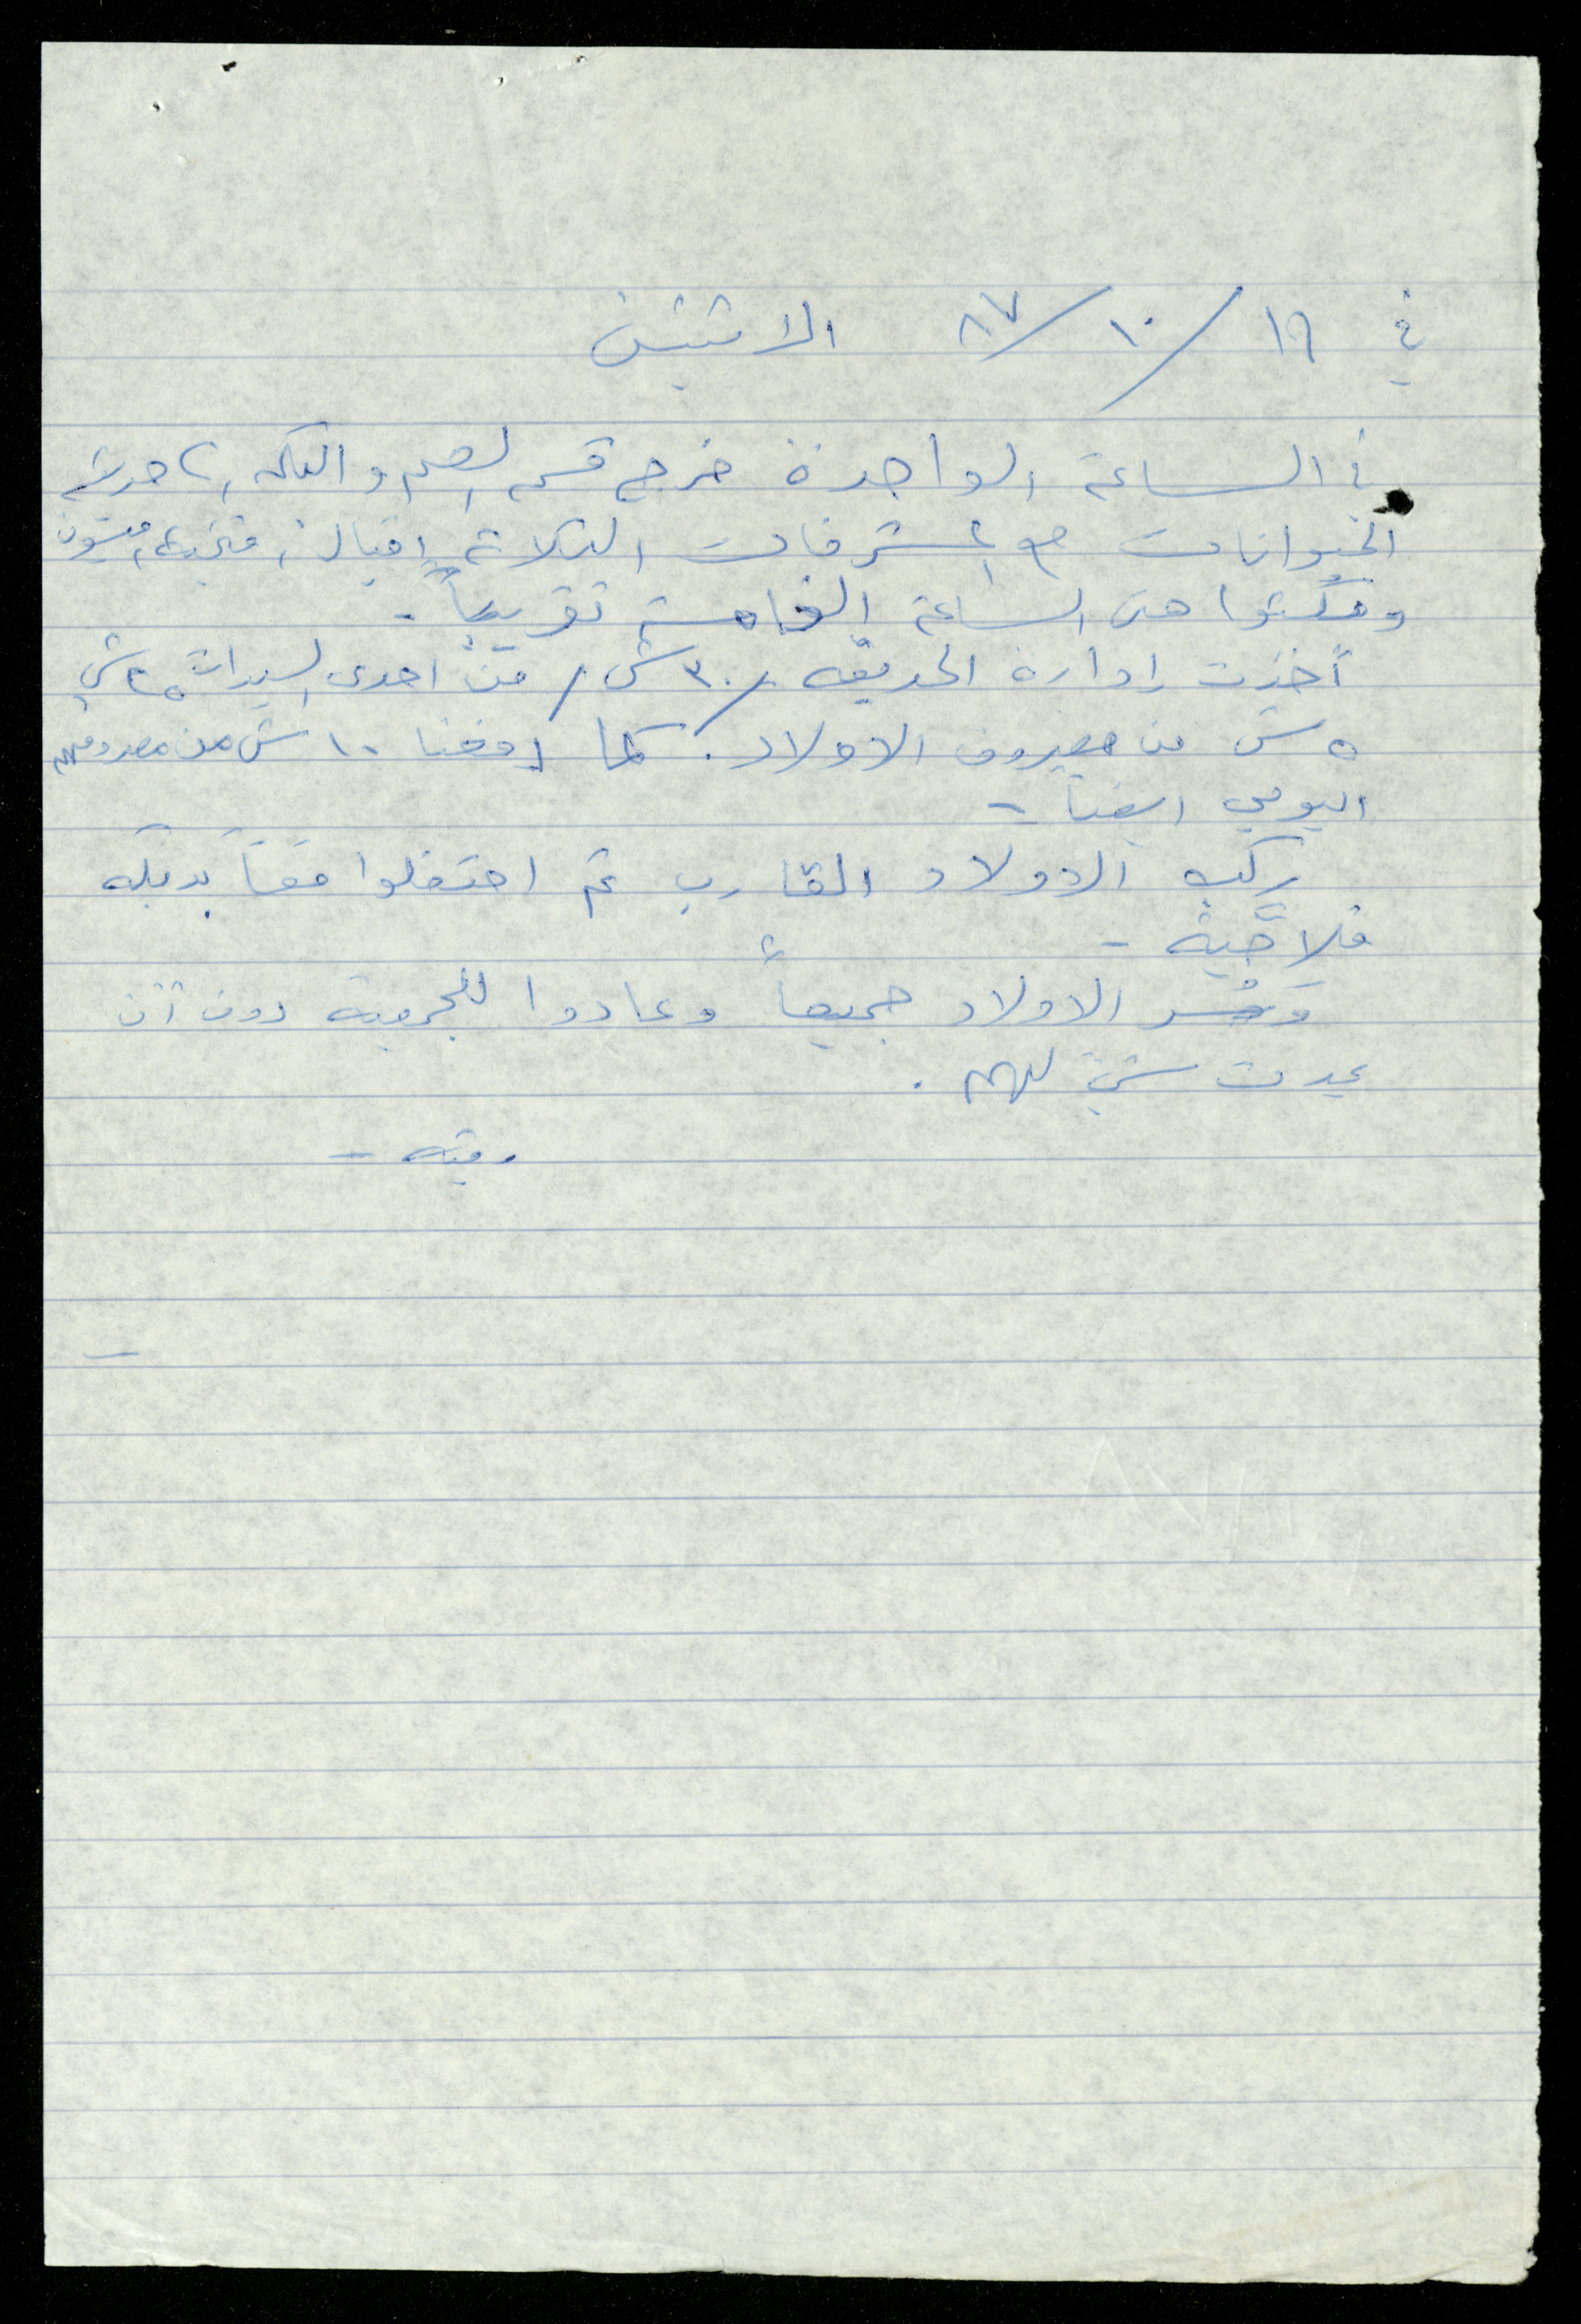 في ١٩ / ١٠ / ٨٧ الاثنين
في الساعة الواحدة خرج قسم الصم والبكم الى حديقة
الحيوانات مع المشرفات الثلاثة اقبال،
ومكثوا حتى الساعة الخامسة تقريباً -
أخذت إدارة الحديقة / ٣٠ ش / من احدى السيدات ٢٥ ش
٥ ش من مصروف الاولاد. كما دفعنا ١٠ ش من مصروفهم
اليومي ايضاً -
ركب الاولاد القارب ثم احتفلوا معاً بدبكه
فلاحّية -
وسُر الاولاد جميعاً وعادوا للجمعية دون أن
يحدث شيء لهم .
رقيه -